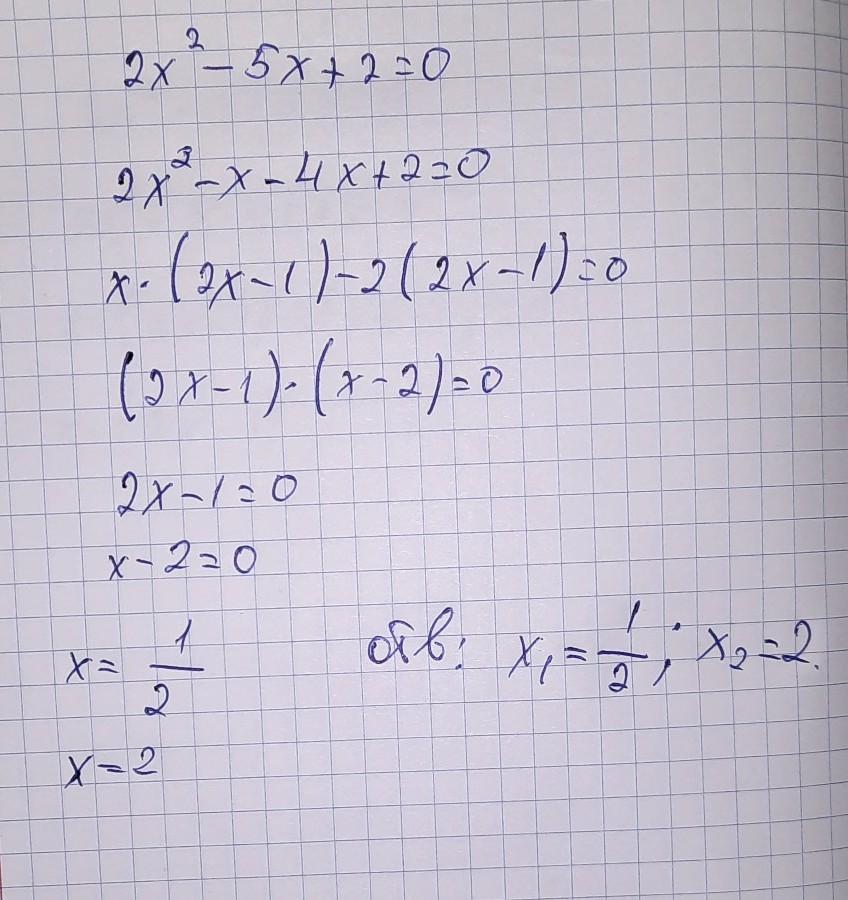 2x² - 5x + 2 = 0
2x² - x - 4x + 2 = 0
x · (2x - 1) - 2(2x - 1) = 0
(2x - 1) · (x - 2) = 0
2x - 1 = 0
x - 2 = 0
x = 1/2
x = 2
отв: x₁ = 1/2; x₂ = 2.